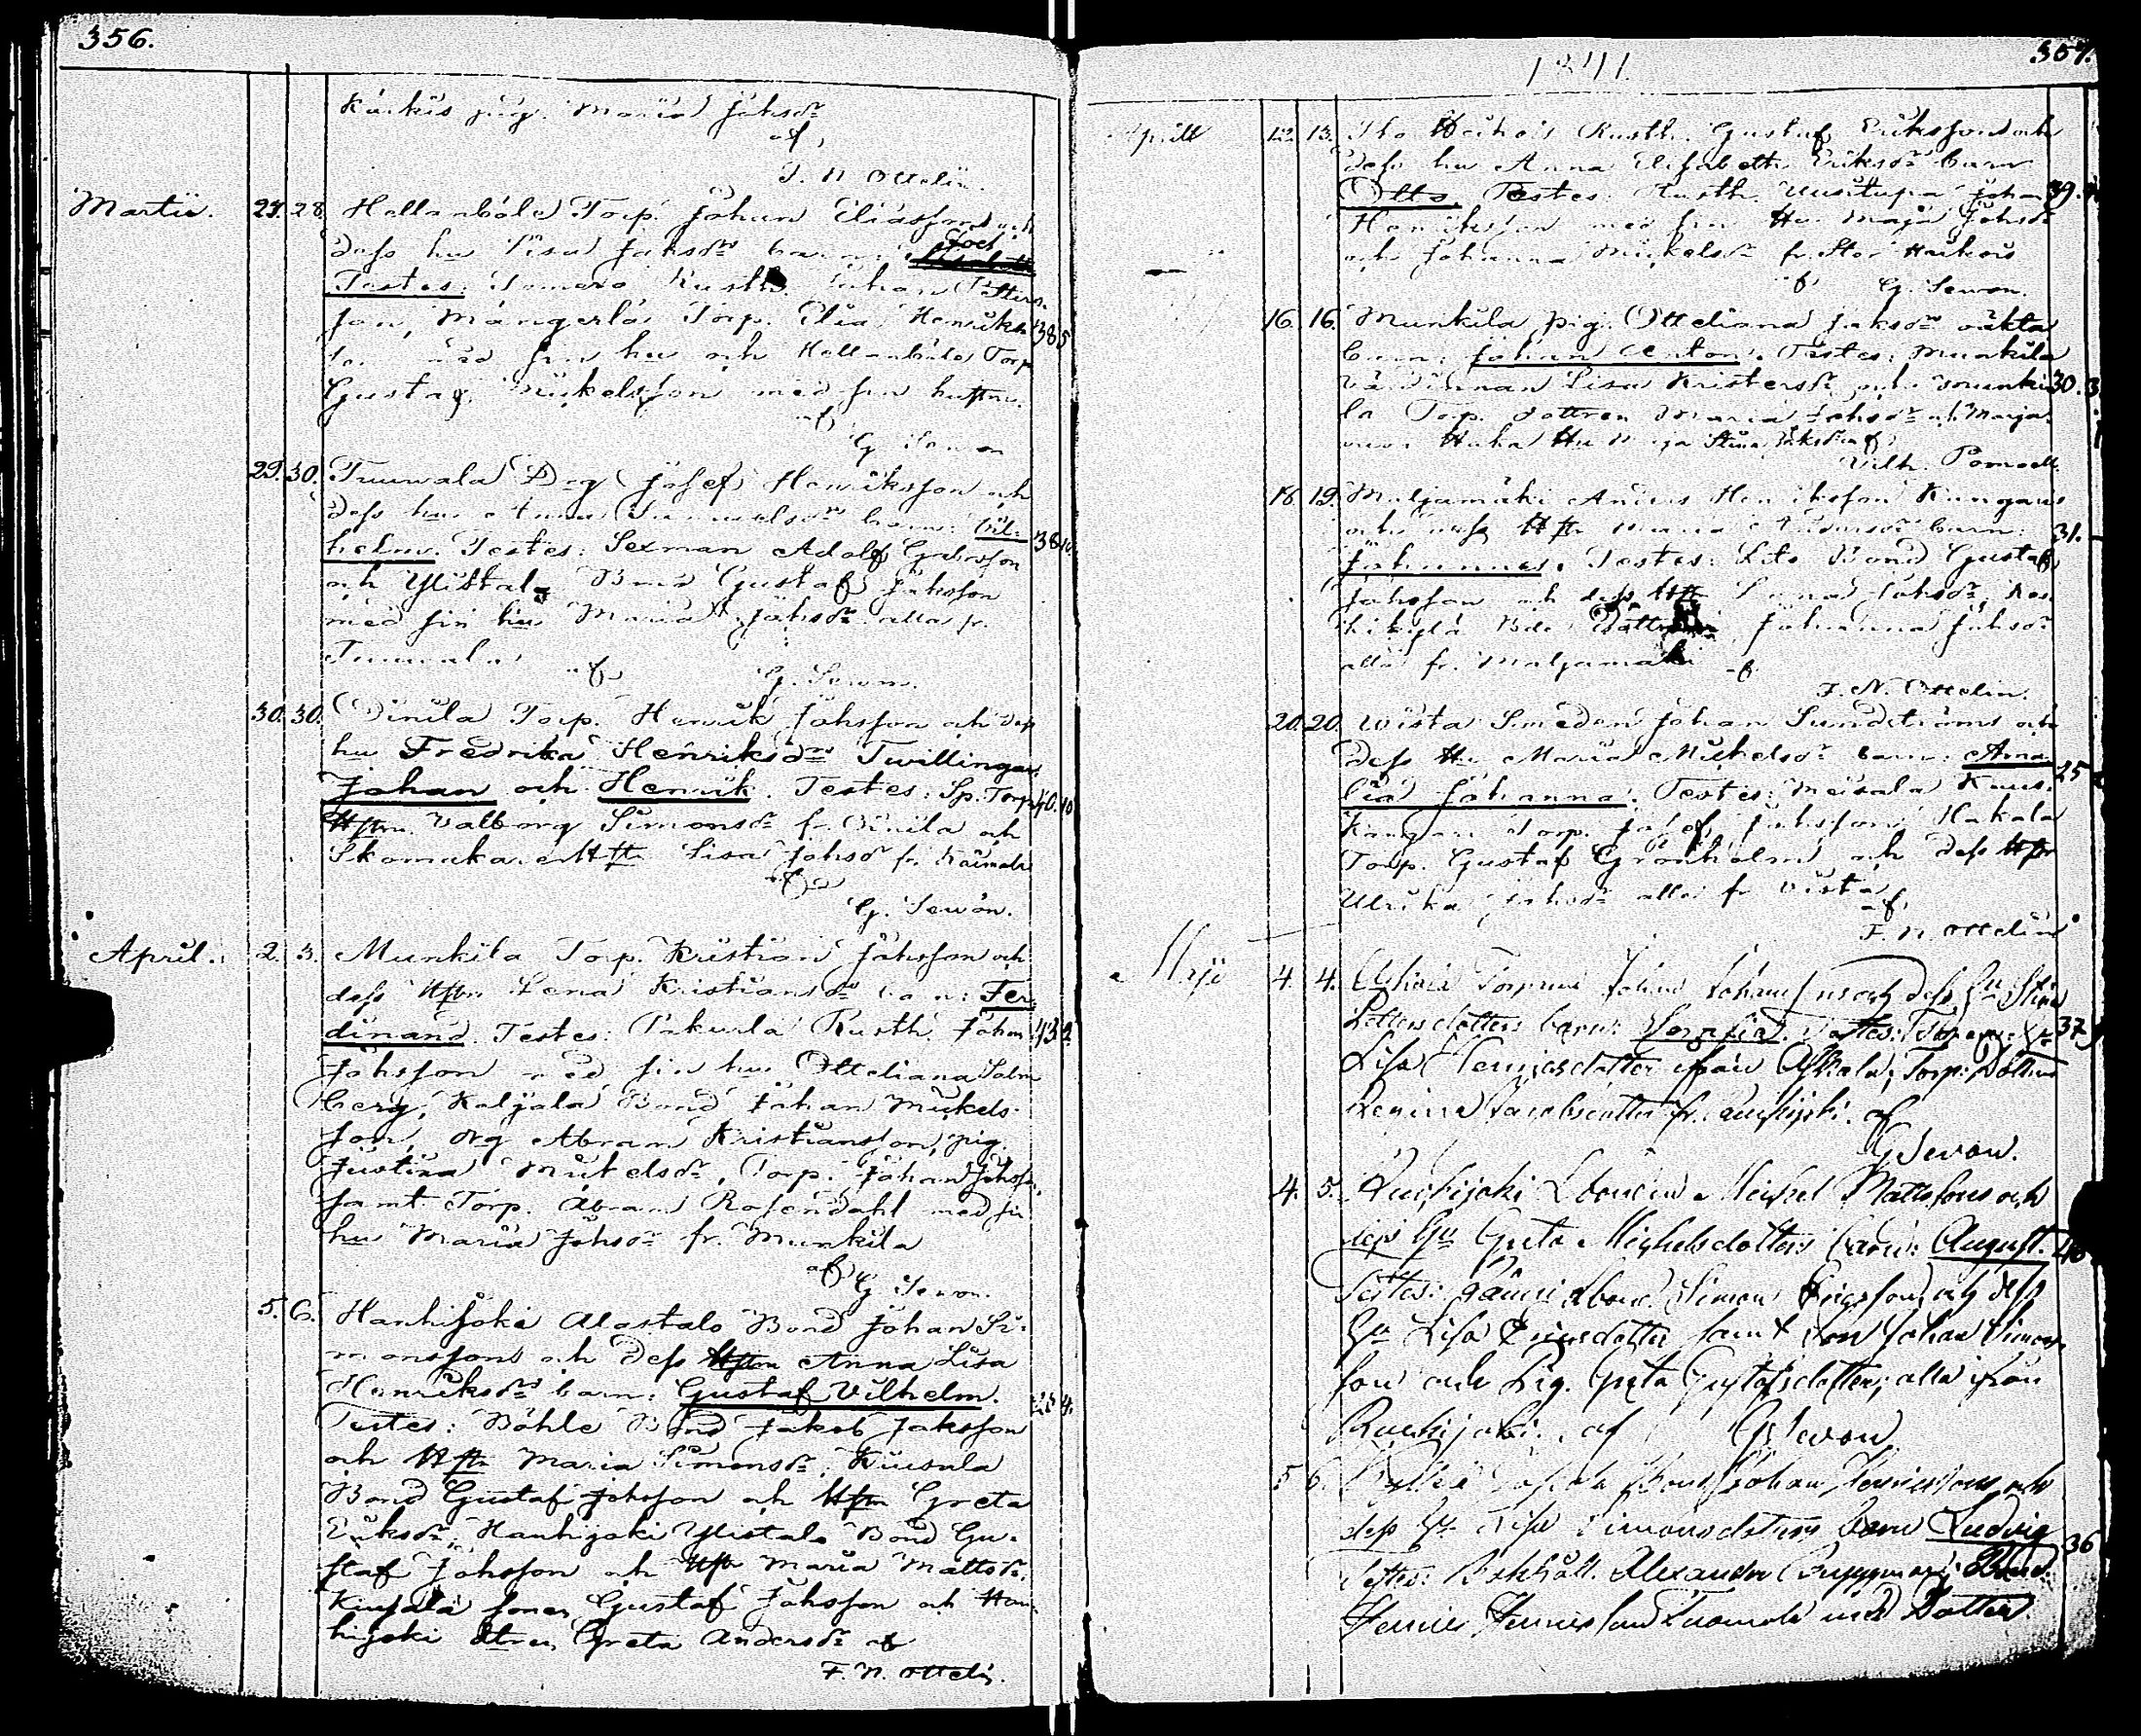 356.
Karkis pig. Maria Johsdr
af
F. N. Ottelin.
Martii. 27. 28. Hellanbåle Torp. Johan Eliasson och
dess hu Lisa Jaksdrs barn:
Testes: Tomero Rusth. Johan
son, Mångerlä Torp. Elia Henriks 38
son med sin hu och Hellanbåle Torp
Gustaf Mikelsson med sin hustru.
af
G. Sewon
29. 30. Tuuvala Drg Josef Henriksson och
dess hu Anna barn: Vil-
helm. Testes: Sexman Adolf Gabrsson 38
och Ylistalo Bond Gustaf Jaksson
med sin hu Maria Johsdr alla fr.
Tuuvala af G. Sewon.
30. 30. Vinila Torp. Henrik Johsson och dess
hu Fredrika Henriksdrs Twillingar
Johan och Henrik. Testes: Sp. Torp 40. 10
Hstru Valborg Simonsdr fr. Vinila och
Skomakare Lisa Johsdr fr.
af
G. Sewón.
April. 2. 3. Munkila Torp. Kristian Johsson och
dess Hstru Lena Kristiansdrs barn: Fer-
dinand. Testes: Pakurla Rusth. Johan 43.
Johsson med sin hu Otteliana Salm
berg, Kaljala Bond Johan Mickels-
son, drg Abram Kristiansson, pig.
Justina Mikelsdr, Torp. Johan Johsson,
samt Torp. Abram Rosendahl med sin
hu Maria Johsdr fr. Munkila
af G. Sewon.
5. 6. Hanhijoki Alastalo Bond Johan Si-
monssons och dess Hstru Anna Lisa
Henriksdrs barn: Gustaf Vilhelm. 4.
Testes: Böhle Bond Jakob Jaksson
och Hstru Maria Simonsdr, Kuusala
Bond Gustaf Johsson och Hstru Greta
Eriksdr, Hanhijoki Ylistalo Bond Gu-
staf Johsson och Hstru Maria Mattsdr.
Kuusala sonen Gustaf Johsson och Han-
hijoki dtren Greta Andersdr af
F. N. Ottelin.
357.
1841.
Aprill 12. 13. Iho Heikois Rusth. Gustaf Eriksson och
dess hu Anna Elisabeth Eriksdrs barn
Otto. Testes: Rusth. Uusitupa Johan 39.
Henriksson med sin Hu Maja Johsdr
och Johanna Mickelsdr fr. Stor Heikois
af G. Sewon.
16. 16. Munkila pig. Otteliana Jaksdrs oäkta
barn: Johan Anton. Testes: Munkila
Värdinnan Lisa Kristersdr, och Munki- 30.
la Torp. dottren Maria Johsdr och
Stina Jaksdr af
Vilh. Pomoell.
18. 19. Maljamäki Anders Henriksson Kangars
och dess Hstr Maria Andersdrs barn: 31.
Johannes. Testes: Lito Bond Gustaf
Johsson och dess Hstr Johsdr,
Johanna Johsdr
alla fr. Maljamäki af
F. N. Ottelin.
20. 20. Wista Smeden Johan Sundströms och
dess Hu Maria Mickelsdrs barn: Ama- 25
lia Johanna. Testes: Meisala Kuus-
Kangare Torp. Josef Johsson, Hakala
Torp. Gustaf Grönholm och dess Hstr
Ulrika Johsdr alla fr. Vista
af
F. N. Ottelin
Maji 4. 4. Torparen Johan Johanssons och dess Hu Stina
barn: Serafia. Testes: 37
Lisa Henricsdotter ifrån Askala, Torp: Dottren
Renina Jacobsdotter fr. Ruskijoki. af
G Sevon.
4. 5. Ruskijoki Lbonden Michel Mattssons och
dess Hu Greta Michelsdotters barn: August. 40
Testes: Lbond. Simon Ericsson, och dess
Hu Lisa Ericsdotter samt Son Johan Simons-
son och Pig. Greta Gustafsdotter; alla ifrån
Ruskijoki. af G Sevon
5 6. Bond Johan Henricssons och
dess Hu Lisa Simonsdotters Barn Ludvig 36
Testes: Bokhåll. Alexander Bond.
Henric Henricsson Tuomola med Dotter